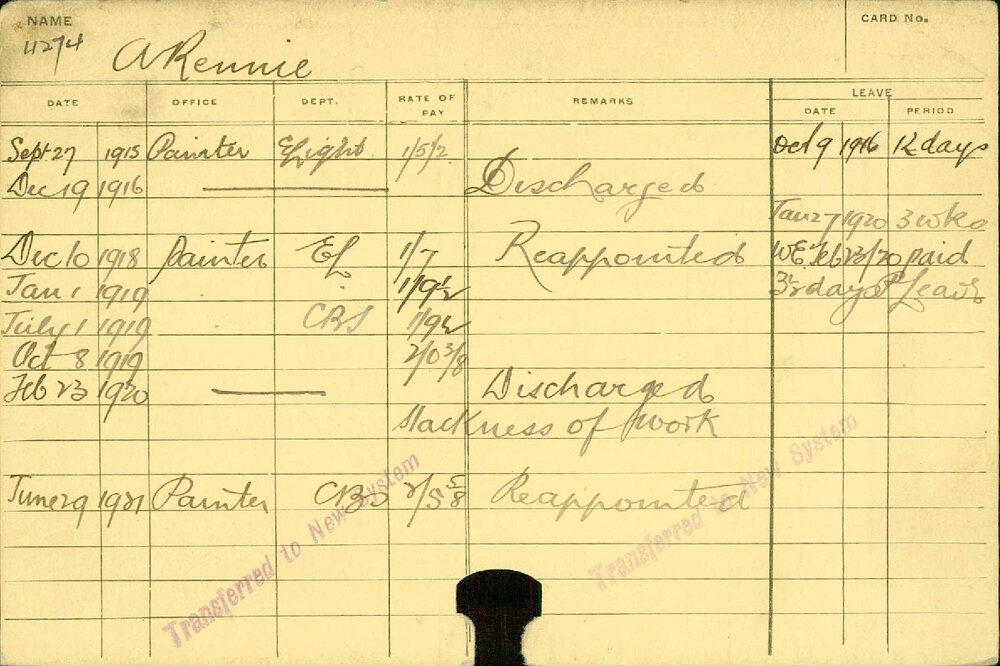 NAME
CARD No.
11274
A Rennie
DATE OFFICE DEPT. RATE OF PAY REMARKS LEAVE
DATE PERIOD
Sept 27 1915 Painter ELight 1/5/2 Oct 9 1916 12 days
Dec 19 1916 Discharged
Jan 27 1920 3 wks
Dec 10 1918 Painter EL 1/7 Reappointed WE Feb 23/20 paid
Jan 1 1919 " " 1/9½ 3½ days Leave
July 1 1919 CBS 1/9½
Oct 8 1919 2/0 3/8
Feb 23 1920 Discharged
slackness of work
June 29 1921 Painter CBS 2/5 5/8 Reappointed
Transferred to New System
Transferred to New System